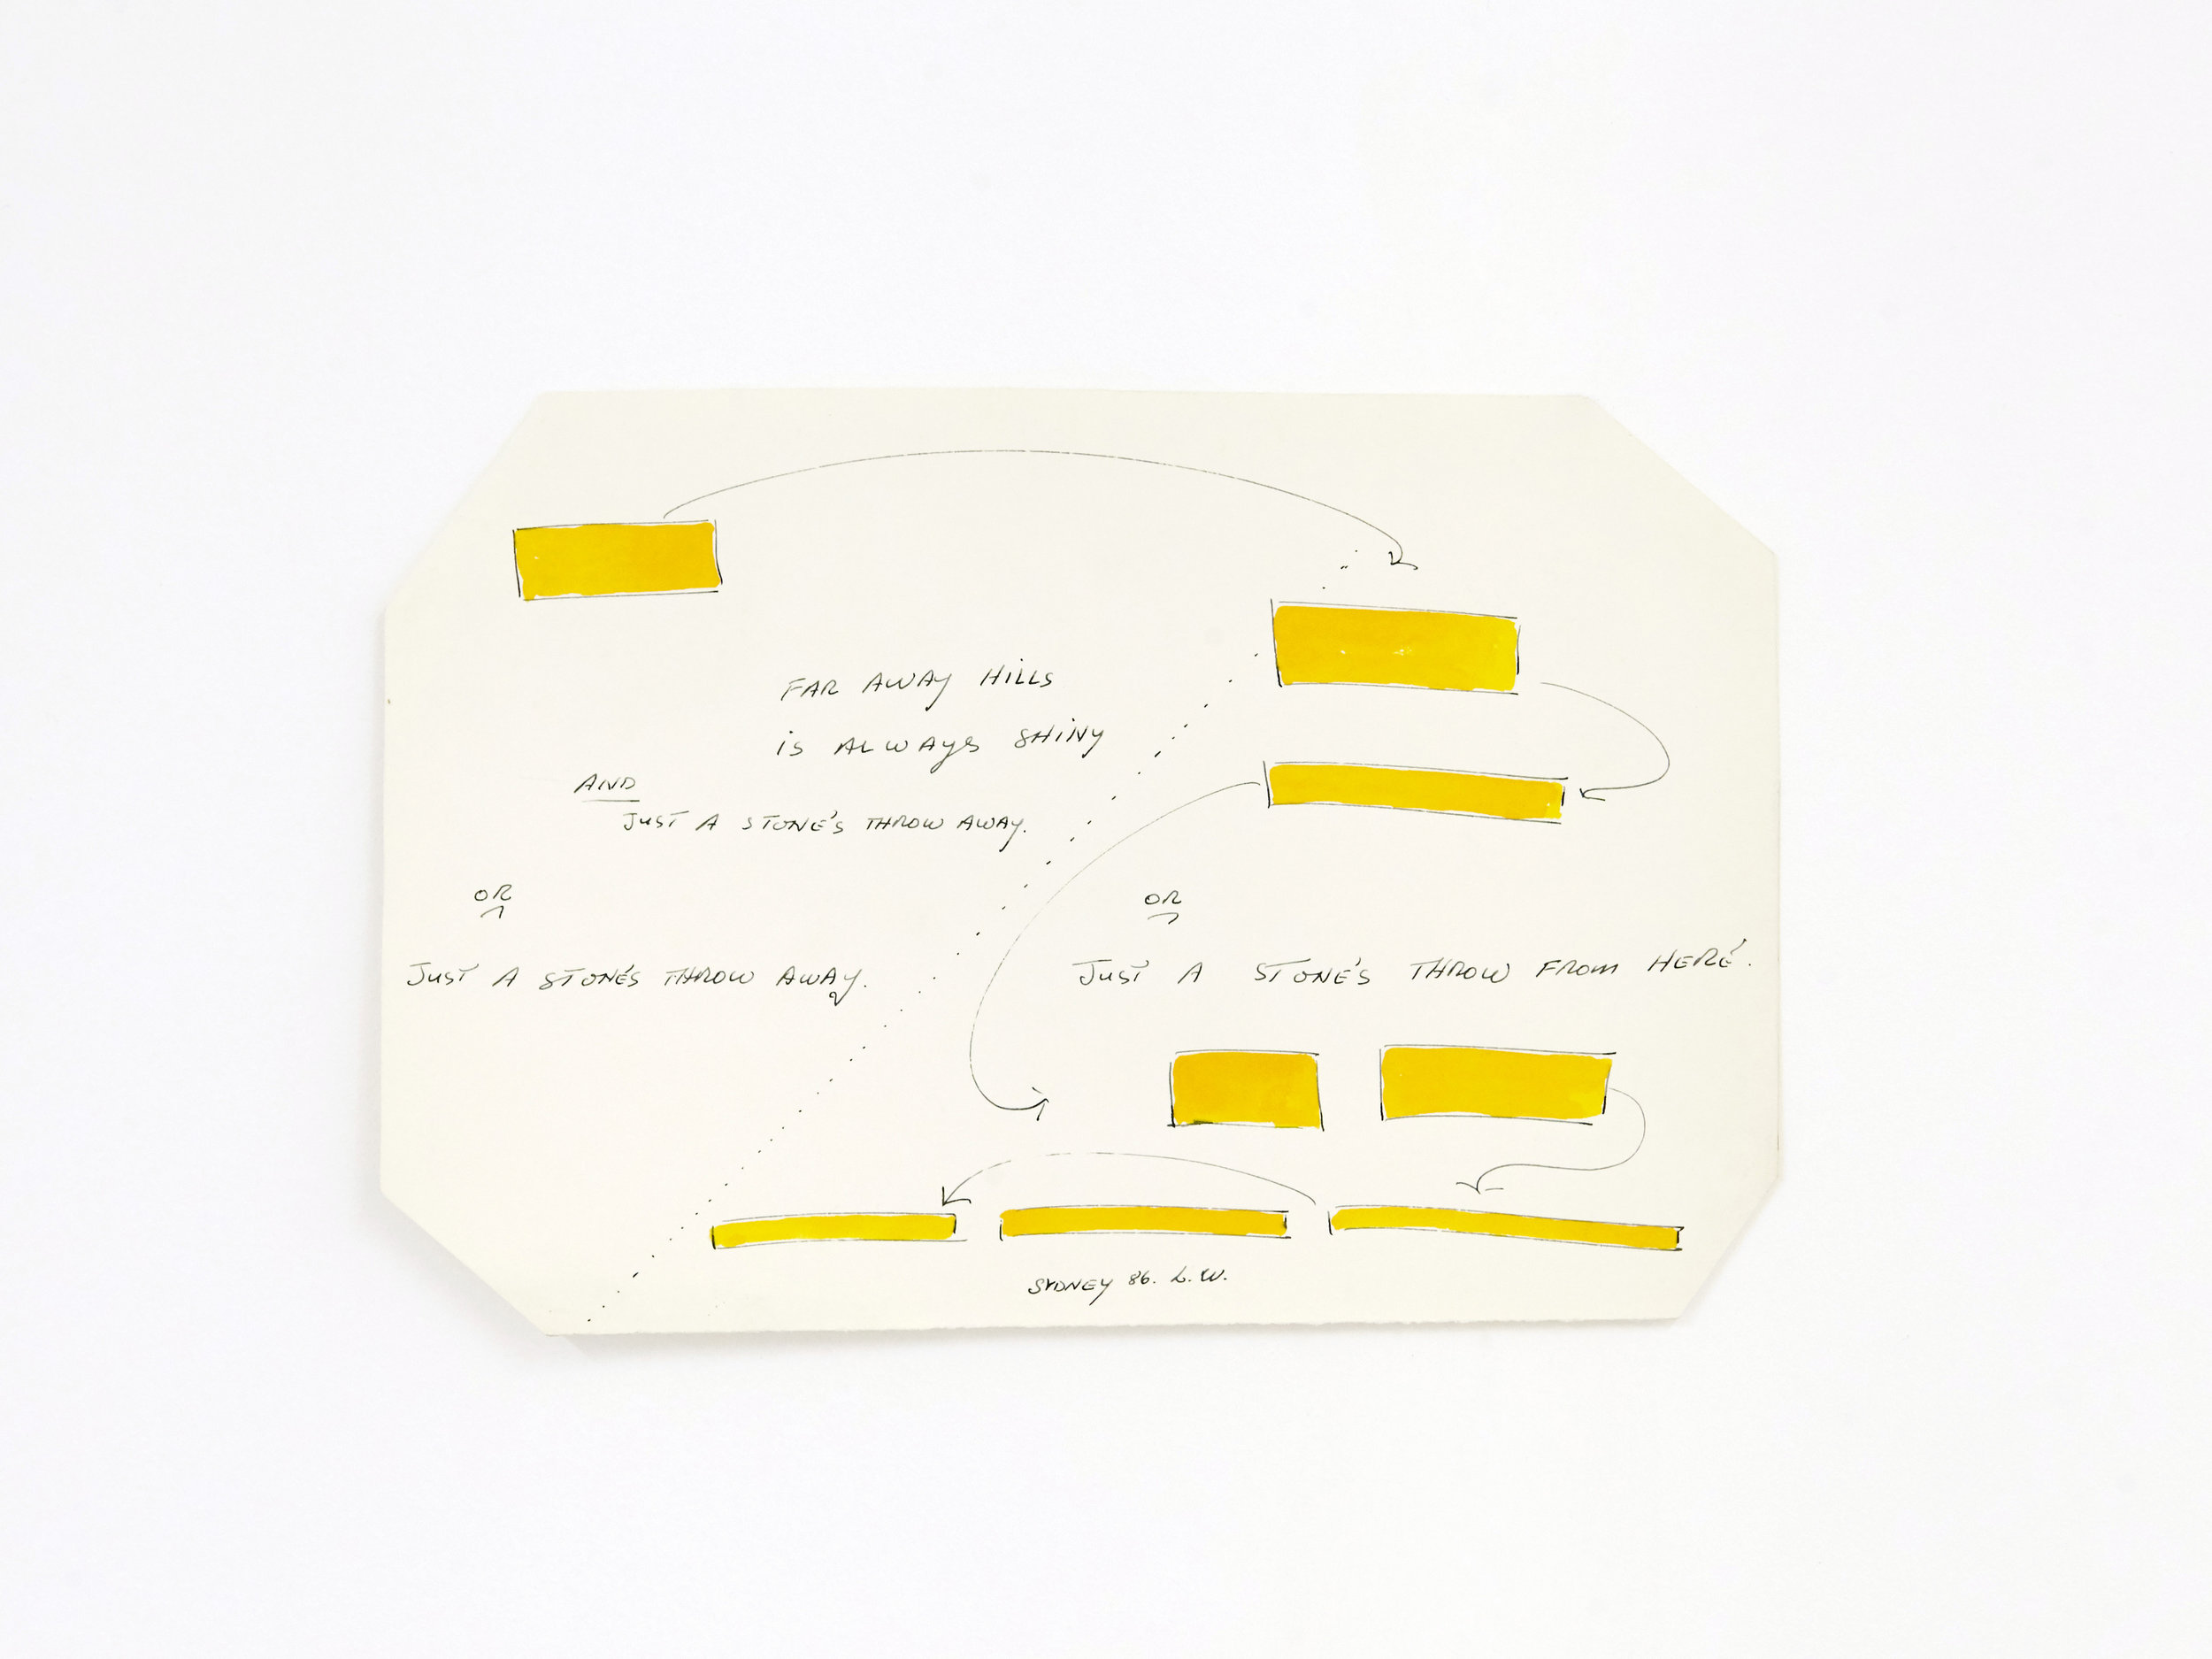 FAR AWAY HILLS
IS ALWAYS SHINY
AND
JUST A STONE'S THROW AWAY.
OR
JUST A STONE'S THROW AWAY.
OR
JUST A STONE'S THROW FROM HERE.
SYDNEY 86. L.W.